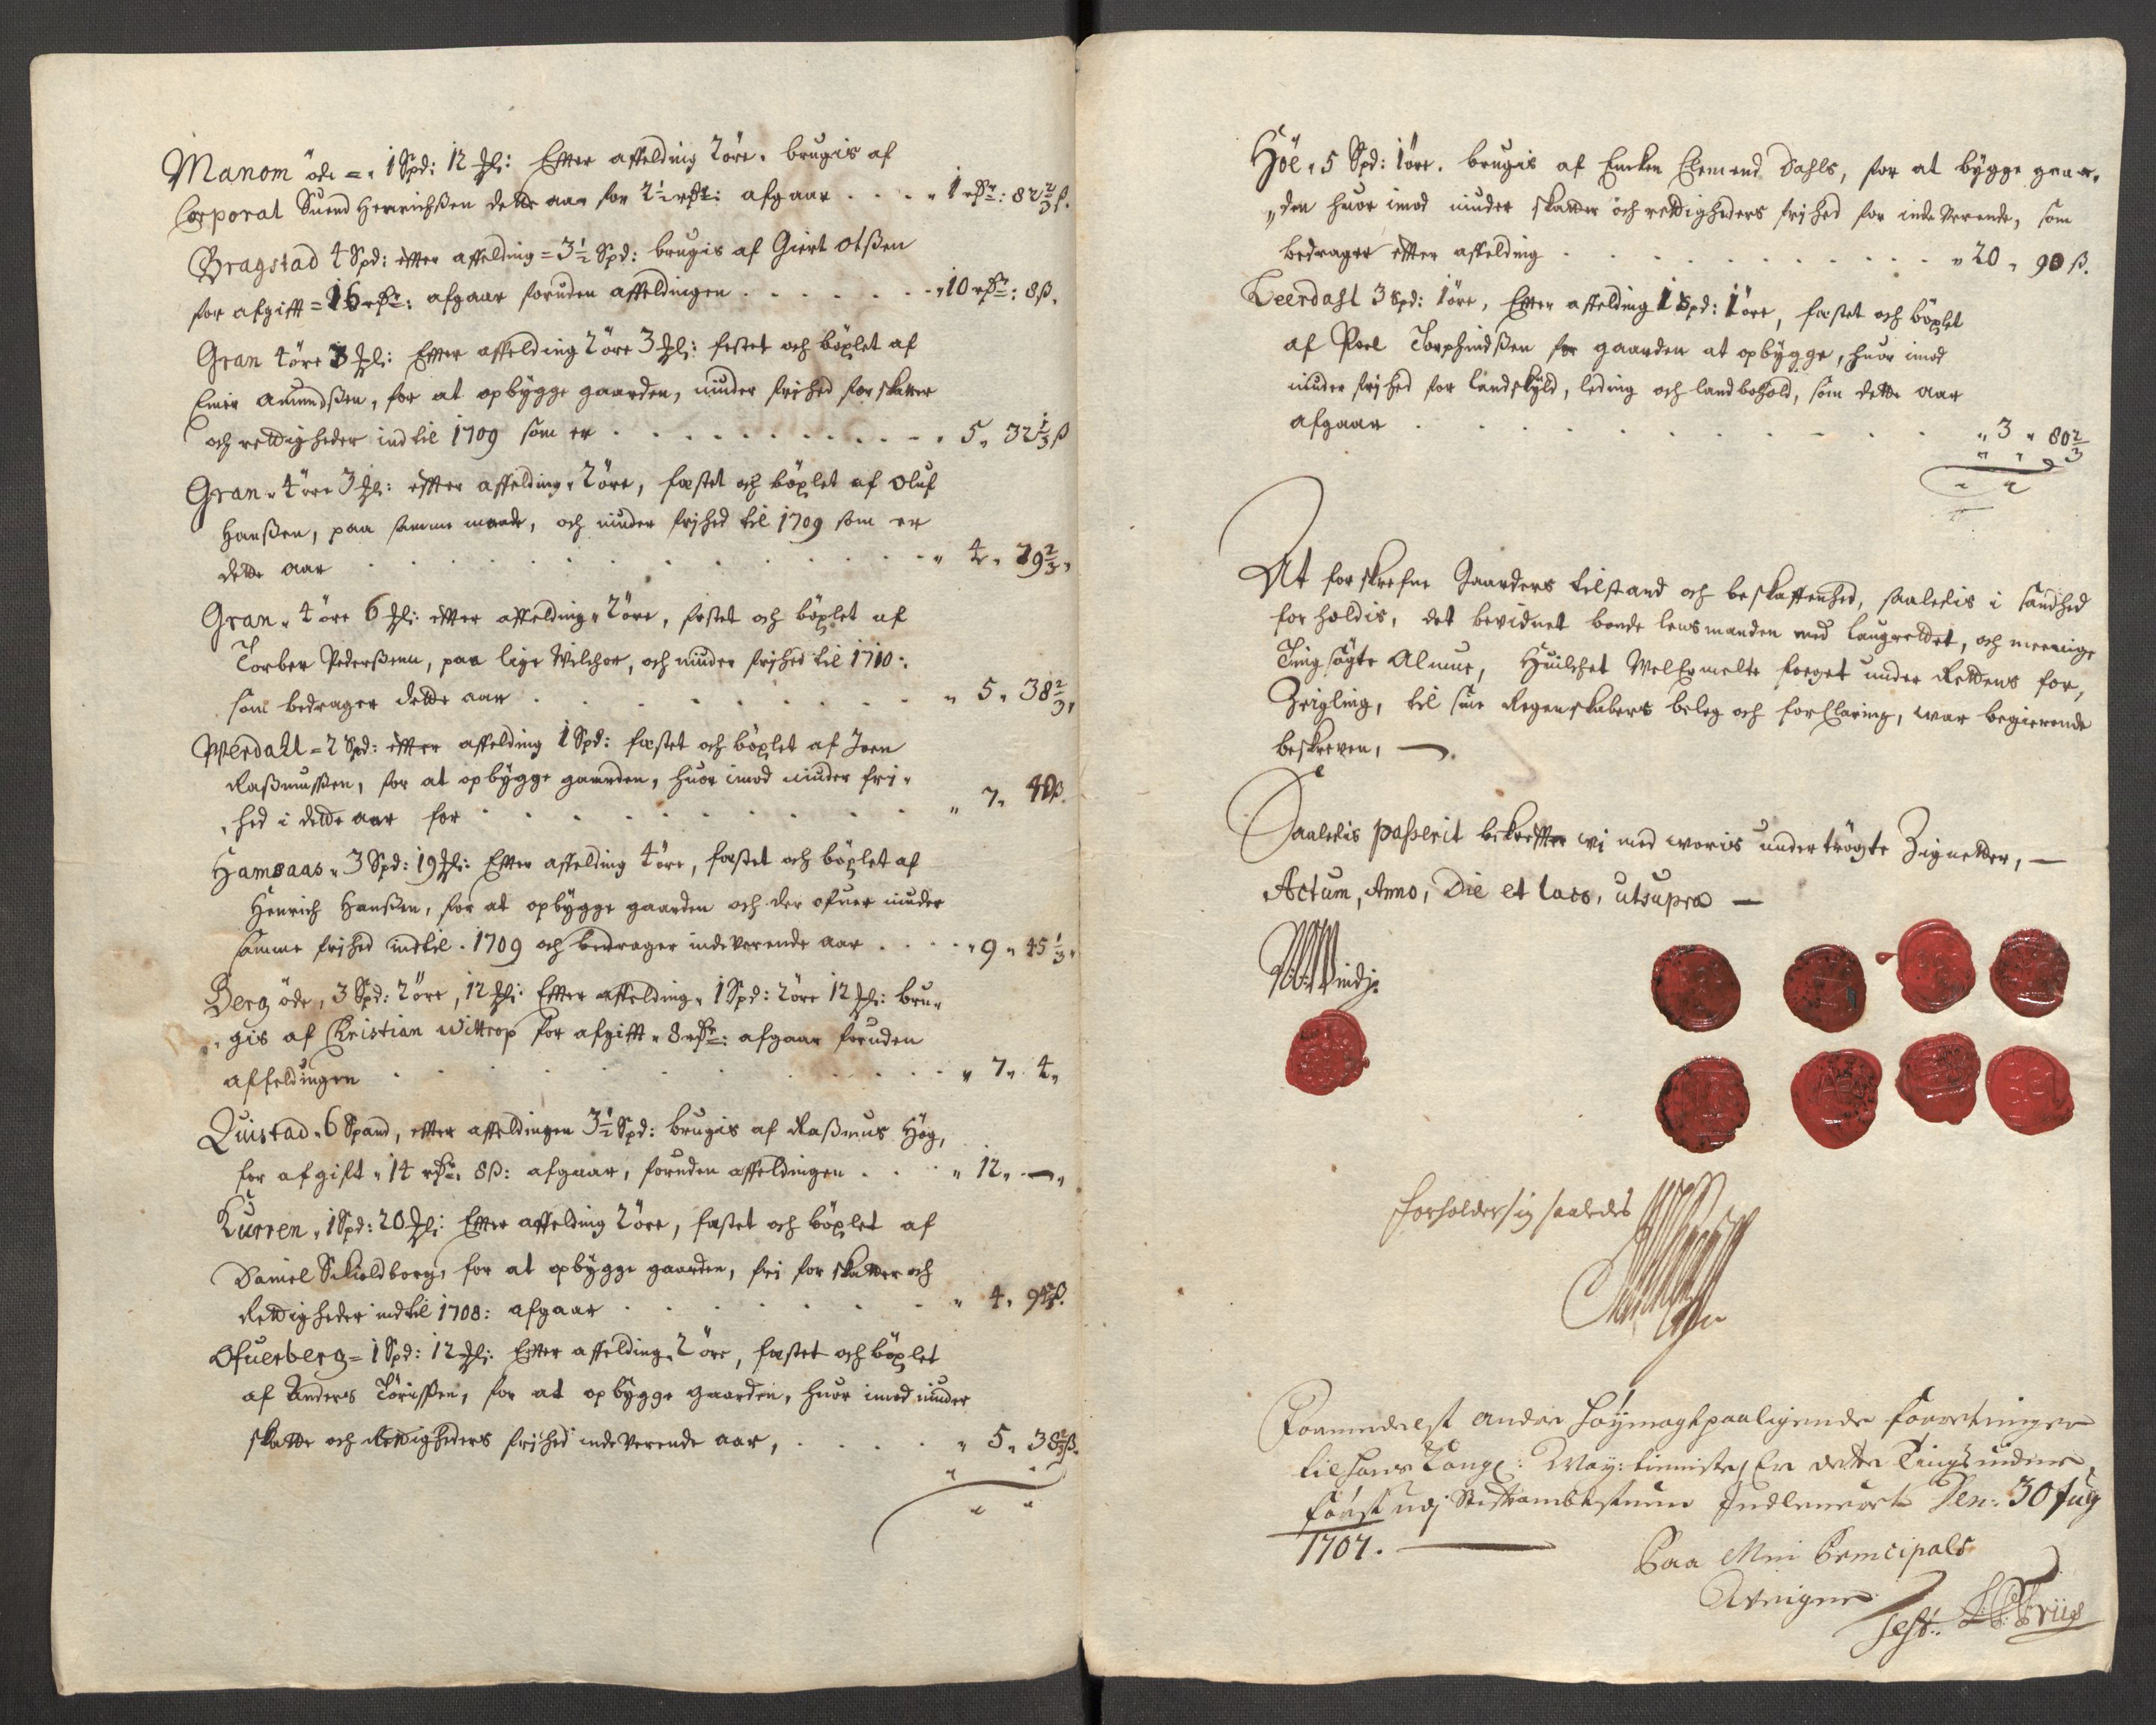 Manom öde = 1 Spd: 12 ℔: Efter affelding 2 öre. brugis af
Corporal Suend Henrichßen dette aar for 2½ rdr: afgaar . . . . 1 rdr: 82⅔ ß.
Bragstad 4 Spd: efter affelding = 3½ Spd: brugis af Giert Olßen
for afgifft = 16 rdr: afgaar foruden affeldingen . . . . . . . 10 rdr: 8 ß.
Gran 4 öre 3 ℔: Efter affelding 2 öre 3 ℔: festet och böxlet af
Amundßen, for at opbygge gaarden, niuder frihed for skatter
och rettigheder indtil 1709 som er . . . . . . . . . . . . 5 „ 32⅓ ß
Gran „ 4 öre 3 ℔: efter affelding „ 2 öre, fæstet och böxlet af Oluf
Hanßen, paa samme maade, och niuder frihed til 1709 som er
dette aar . . . . . . . . . . . . . „ 4 „ 29⅔ „
Gran „ 4 öre 6 ℔: efter affelding „ 2 öre, festet och böxlet af
Torber Pederßenn, paa lige Wilchor, och niuder frihed til 1710:
som bedrager dette aar . . . . . . . . . „ 5 „ 38⅔ „
Werdall = 2 Spd: efter affelding 1 Spd: fæstet och böxlet af Joen
Raßmussen, for at opbygge gaarden, huor imod niuder fri„
„hed i dette aar for . . . . . . . . . „ 7 „ 40 ß.
Hamsaas „ 3 Spd: 19 ℔: Efter affelding 4 öre, fæstet och böxlet af
Henrich Hanßen, for at opbygge gaarden och der ofuer niuder
samme frihed indtil 1709 och bedrager indeverende aar . . . . „ 9 „ 45⅓ „
Berg öde, 3 Spd: 2 öre, 12 ℔: Efter affelding „ 1 Spd: 2 öre 12 ℔: bru„
„gis af Christian Wittrop for afgifft „ 8 rdr: afgaar foruden
affeldingen . . . . . . . . . . . „ 7 „ 4 „
Quistad „ 6 Spand, efter affeldingen 3½ Spd: brugis af Raßmus Hög,
for afgift „ 14 rdr: 8 ß: afgaar, foruden affeldingen . . . „ 12 „ — „
Kurren „ 1 Spd: 20 ℔: Efter affelding 2 öre, fæstet och böxlet af
Daniel Schieldborg, for at opbygge gaarden, fri for skatter och
Rettigheder indtil 1708: afgaar . . . . . . . „ 4 „
Ofuerberg = 1 Spd: 12 ℔: Efter affelding „ 2 öre, fæstet och böxlet
af Anders Törisßen, for at opbygge gaarden, huor imod niuder
skatte och Rettigheders frihed indeverende aar, . . . . . „ 5 „ 38⅔ ß.
Höe „ 5 Spd: 1 öre. brugis af Enken Dahls, for at bygge gaar„
„den huor imod niuder skatter och rettigheders frihed for indeverende, som
bedrager efter affelding . . . . . . . . . . . . . „ 20 „ 90 ß.
Leerdahl 3 Spd: 1 öre, Efter affelding 1 Spd: 1 öre, fæstet och böxlet
af Poel Torphindßen for gaarden at opbygge, huor imod
niuder frihed for landskyld, leding och landbohold, som dette aar
afgaar . . . . . . . . . . . „ 3 „ 80⅔
At forskrefne Gaarders tilstand och beskaffenhed, saaledis i sandhed
forholdis, det bevidnet bonde lensmanden med Laugrettet, och meenige
Tingsögte Almue, Huilchet Welermelte foeget under Rettens for„
Zeigling, til sine Regenskabers beleg och forklaring, war begierende
beskreven, —
Saaledis passerit bekrefter wi med woris undertrögte Zignetter, —
Actum, Anno, Die et loco, utsupra —
forholder sig saaledes
Formedelst andre höymagtpaaligende forretninger
til hans Kongl: May: tieniste, Er dette Tingsvidne
först udj Stiftambtstuen Indleveret Den: 30 July
1707. —
Paa Min Principals
Vegne
Test: